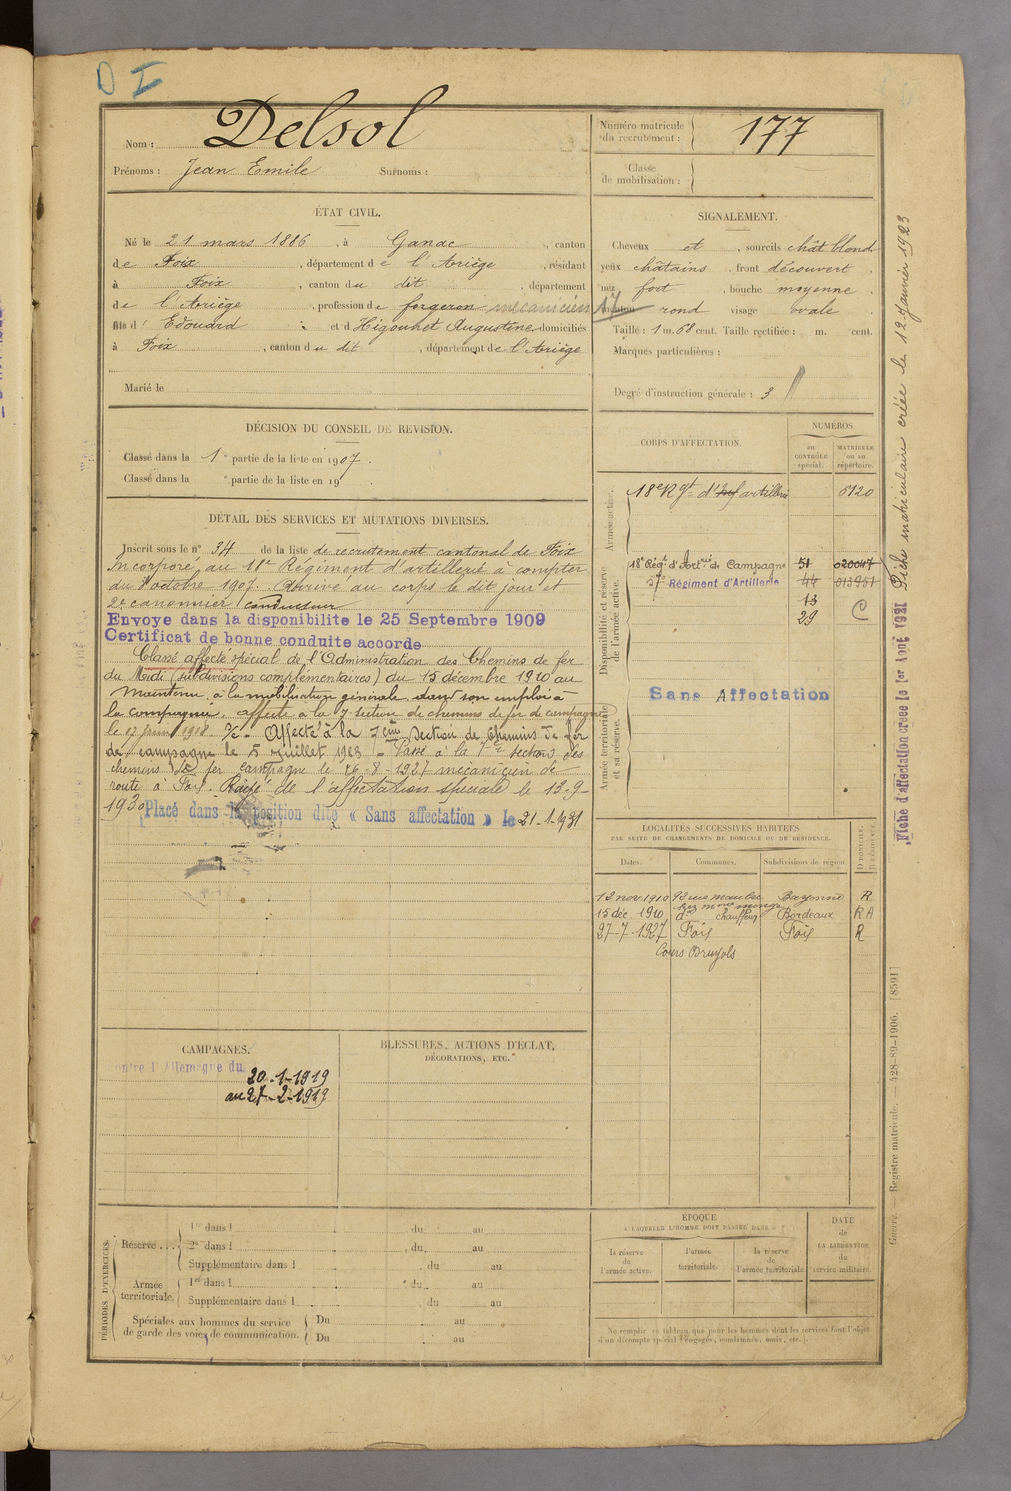 D I
Nom : Delsol
Prénoms : Jean Emile Surnoms :
Numéro matricule du recrutement : 177
Classe de mobilisation :
ÉTAT CIVIL.
Né le 21 mars 1886, à Ganac, canton
de Foix, département de l'Ariège, résidant
à Foix, canton du dit, département
de l'Ariège, profession de forgeron mécanicien 17
fils d'Edouard et d'Higounet Augustine, domiciliés
à Foix, canton du dit, département de l'Ariège
Marié le
SIGNALEMENT.
Cheveux et, sourcils chât blond
yeux châtains, front découvert,
nez fort, bouche moyenne,
menton rond visage ovale.
Taille : 1 m. 68 cent. Taille rectifiée : m. cent.
Marques particulières :
Degré d'instruction générale : 3
DÉCISION DU CONSEIL DE REVISION.
Classé dans la 1e partie de la liste en 1907.
Classé dans la e partie de la liste en 19
DÉTAIL DES SERVICES ET MUTATIONS DIVERSES.
Inscrit sous le n° 34 de la liste de recrutement cantonal de Foix
Incorporé au 18e Régiment d'artillerie à compter
du octobre 1907. Arrivé au corps le dit jour et
2e canonnier conducteur
Envoye dans la disponibilite le 25 Septembre 1909
Certificat de bonne conduite accorde
Classé affecté spécial de l'Administration des Chemins de fer
du Midi (subdivisions complémentaires) du 15 décembre 1910 au
Maintenu à la mobilisation générale dans son emploi à
la compagnie. affecté à la 7 section de chemins de fer de campagne
le 17 1918. Affecté à la 7ème Section de Chemins de fer
de campagne le 5 Juillet 1923 Passé à la 7e section des
chemins de fer campagne le 16-8-1927 mécanicien de
route à Foix. Rayé de l'affectation spéciale le 13-9-
1930 Placé dans la position dite « Sans affectation » le 21-1-1931
CORPS D'AFFECTATION.
NUMÉROS
au contrôle spécial.
MATRICULE ou au répertoire.
Armée active.
18e Rgt d'Inf artillerie 5120
Disponibilité et réserve de l'armée active.
18e Régt d'Artrie de Campagne 51 020047
57e Régiment d'Artillerie 44 013951
13
29 C
Sans Affectation
Armée territoriale et sa réserve.
LOCALITÉS SUCCESSIVES HABITÉES
PAR SUITE DE CHANGEMENTS DE DOMICILE OU DE RÉSIDENCE.
Dates. Communes. Subdivisions de région. D DOMICILE. R RÉSIDENCE.
12 nov. 1910 rue Maubec Bayonne R
15 déc. 1910 do chauffeur Bordeaux RA
27-7-1927 Foix Foix R
Cours Bruyols
CAMPAGNES.
contre l'Allemagne du
20-1-1919
au 27-2-1919
BLESSURES, ACTIONS D'ÉCLAT,
DÉCORATIONS, ETC.
PÉRIODES D'EXERCICES.
Réserve . . . 1re dans l du au
2e dans l du au
Supplémentaire dans l du au
Armée territoriale. 1re dans l du au
Supplémentaire dans l du au
Spéciales aux hommes du service Du au
de garde des voies de communication. Du au
ÉPOQUE
À LAQUELLE L'HOMME DOIT PASSER DANS :
la réserve de l'armée active.
l'armée territoriale.
la réserve de l'armée territoriale
DATE de LA LIBÉRATION du service militaire.
Ne remplir ce tableau que pour les hommes dont les services font l'objet
d'un décompte spécial (engagés, condamnés, omis, etc.).
Fiche d'affectation créée le 1er Août 1921 Fiche matriculaire créée le 12 Janvier 1923
Guerre. — Registre matricule. — 428-89-1906. [8591]